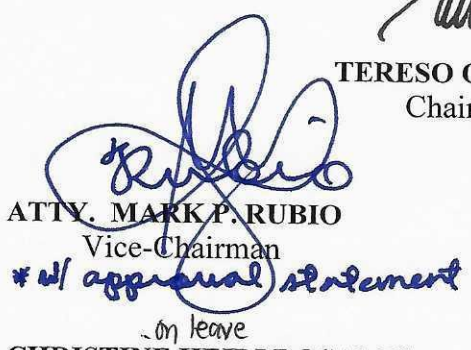 TERESO
Chair
Rubio
ATTY. MARK P. RUBIO
Vice-Chairman
* w/ approval statement
on leave
CHRISTINE